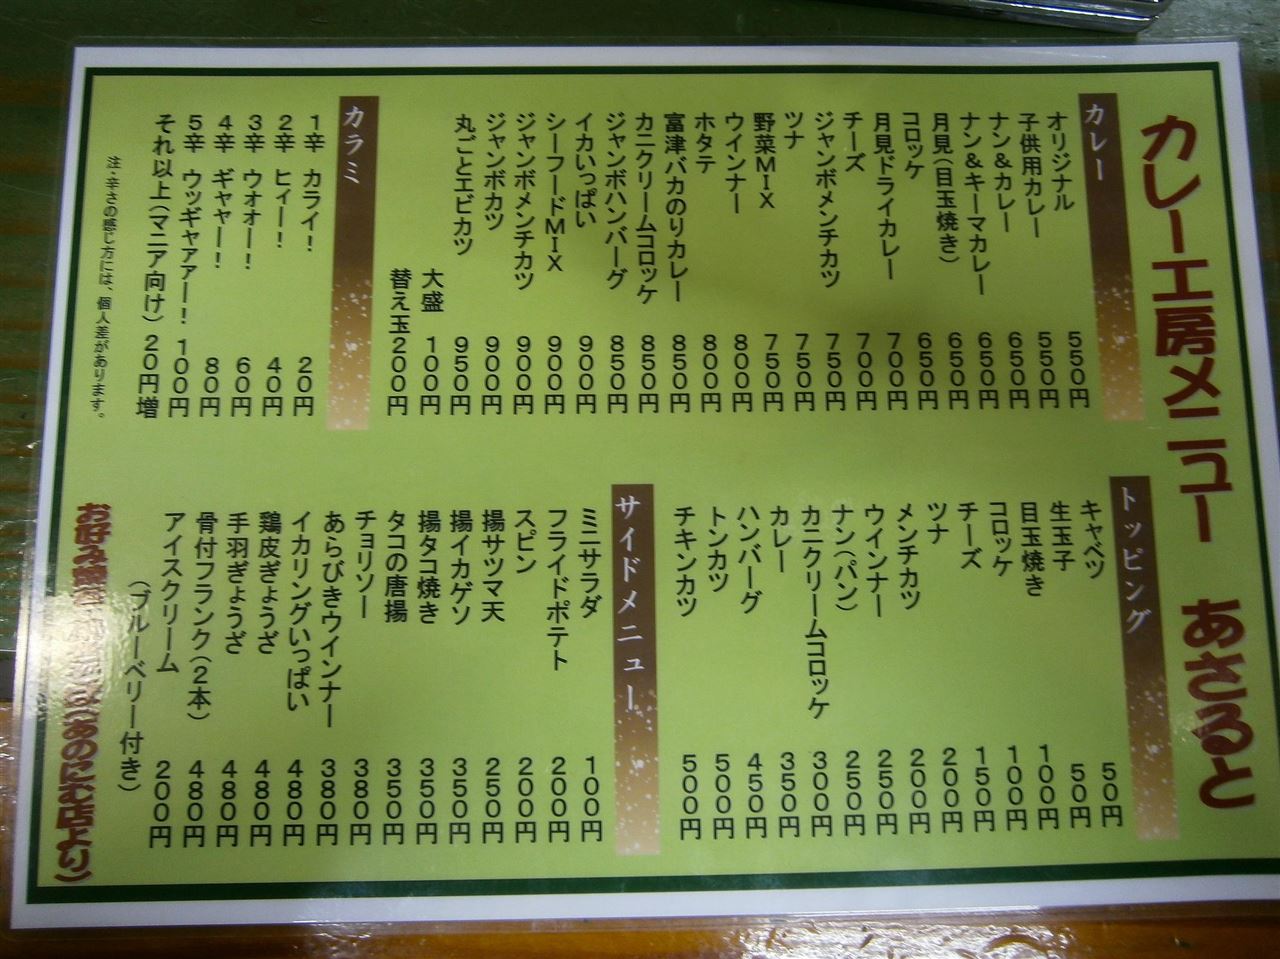 カレー工房メニュー あさると
カレー
オリジナル 550円
子供用カレー 550円
ナン&カレー 650円
ナン&キーマカレー 650円
月見(目玉焼き) 650円
コロッケ 650円
月見ドライカレー 700円
チーズ 700円
ジャンボメンチカツ 750円
ツナ 750円
野菜MIX 750円
ウインナー 800円
ホタテ 800円
富津バカのりカレー 850円
カニクリームコロッケ 850円
ジャンボハンバーグ 850円
イカいっぱい 900円
シーフードMIX 900円
ジャンボメンチカツ 900円
ジャンボカツ 900円
丸ごとエビカツ 950円
大盛 100円
替え玉 200円
カラミ
1辛 カライ! 20円
2辛 ヒィー! 40円
3辛 ウォオー! 60円
4辛 ギャャー! 80円
5辛 ウッギャアアー! 100円
それ以上(マニア向け) 20円増
注・辛さの感じ方には、個人差があります。
トッピング
キャベツ 50円
生玉子 50円
目玉焼き 100円
コロッケ 100円
チーズ 150円
ツナ 200円
メンチカツ 200円
ウインナー 250円
ナン(パン) 250円
カニクリームコロッケ 300円
カレー 350円
ハンバーグ 450円
トンカツ 500円
チキンカツ 500円
サイドメニュー
ミニサラダ 100円
フライドポテト 200円
スピン 200円
揚サツマ天 250円
揚イカゲソ 350円
揚タコ焼き 350円
タコの唐揚 350円
チョリソー 380円
あらびきウインナー 380円
イカリングいっぱい 480円
鶏皮ぎょうざ 480円
手羽ぎょうざ 480円
骨付フランク(2本) 480円
アイスクリーム 200円
(ブルーベリー付き)
お好み焼 (あのにむ店より)